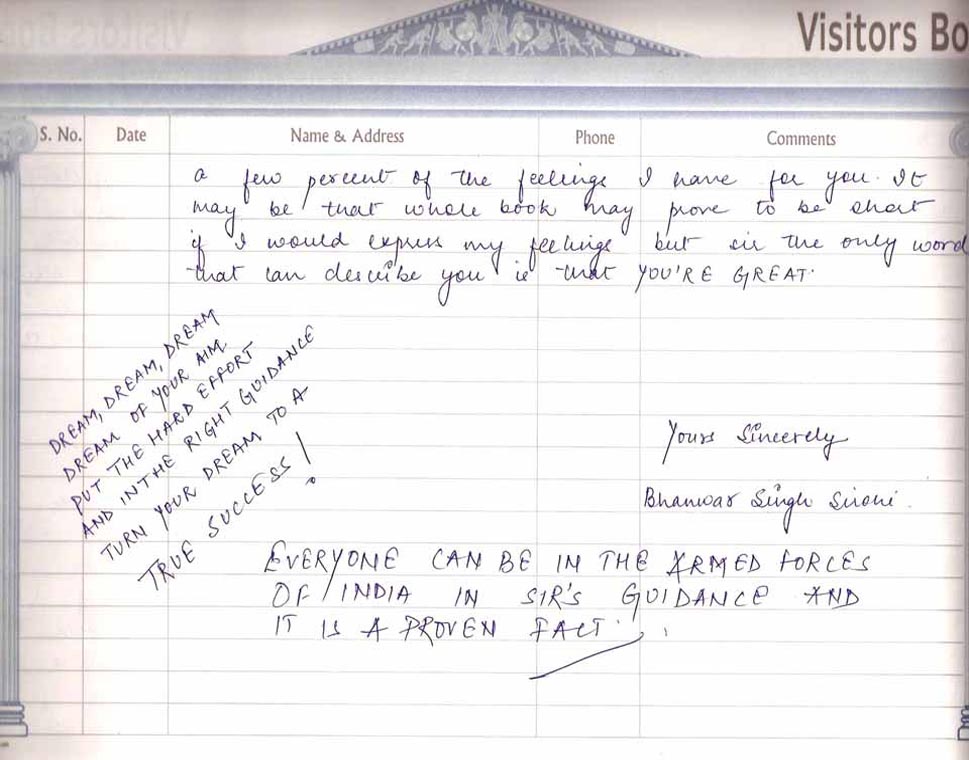 Visitors Bo
S. No. Date Name & Address Phone Comments
a few percent of the feelings I have for you. It
may be that whole book may prove to be short
if I would express my feelings but sir the only word
that can describe you is that YOU'RE GREAT.
DREAM, DREAM, DREAM
DREAM OF YOUR AIM
PUT THE HARD EFFORT
AND IN THE RIGHT GUIDANCE
TURN YOUR DREAM TO A
TRUE SUCCESS!
Yours Sincerely
Bhanwar Singh
EVERYONE CAN BE IN THE ARMED FORCES
OF INDIA IN SIR'S GUIDANCE AND
IT IS A PROVEN FACT.